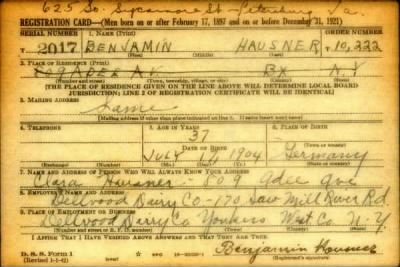 625 So. Sycamore St - Petersburg Va.
REGISTRATION CARD—(Men born on or after February 17, 1897 and on or before December 31, 1921)
SERIAL NUMBER 1. NAME (Print) ORDER NUMBER
T 2017 BENJAMIN HAUSNER T 10,222
2. PLACE OF RESIDENCE (Print)
809 ADEE AV. BX N Y
(Number and street) (Town, township, village, or city) (County) (State)
[THE PLACE OF RESIDENCE GIVEN ON THE LINE ABOVE WILL DETERMINE LOCAL BOARD
JURISDICTION; LINE 2 OF REGISTRATION CERTIFICATE WILL BE IDENTICAL]
3. MAILING ADDRESS
Same
[Mailing address if other than place indicated on line 2. If same insert word same]
4. TELEPHONE 5. AGE IN YEARS 6. PLACE OF BIRTH
37
DATE OF BIRTH
JULY 1904 Germany
(Exchange) (Number) (Mo.) (Day) (Yr.) (State or country)
7. NAME AND ADDRESS OF PERSON WHO WILL ALWAYS KNOW YOUR ADDRESS
Clara Hausner - 809 Adee Ave
8. EMPLOYER'S NAME AND ADDRESS
Dellwood Dairy Co - 170 Saw Mill River Rd
9. PLACE OF EMPLOYMENT OR BUSINESS
Dellwood Dairy Co Yonkers West Co N.Y.
(Number and street or R. F. D. number) (Town) (County) (State)
I AFFIRM THAT I HAVE VERIFIED ABOVE ANSWERS AND THAT THEY ARE TRUE.
Benjamin Hausner
D. S. S. Form 1
(Revised 1-1-42) (over) (Registrant's signature)